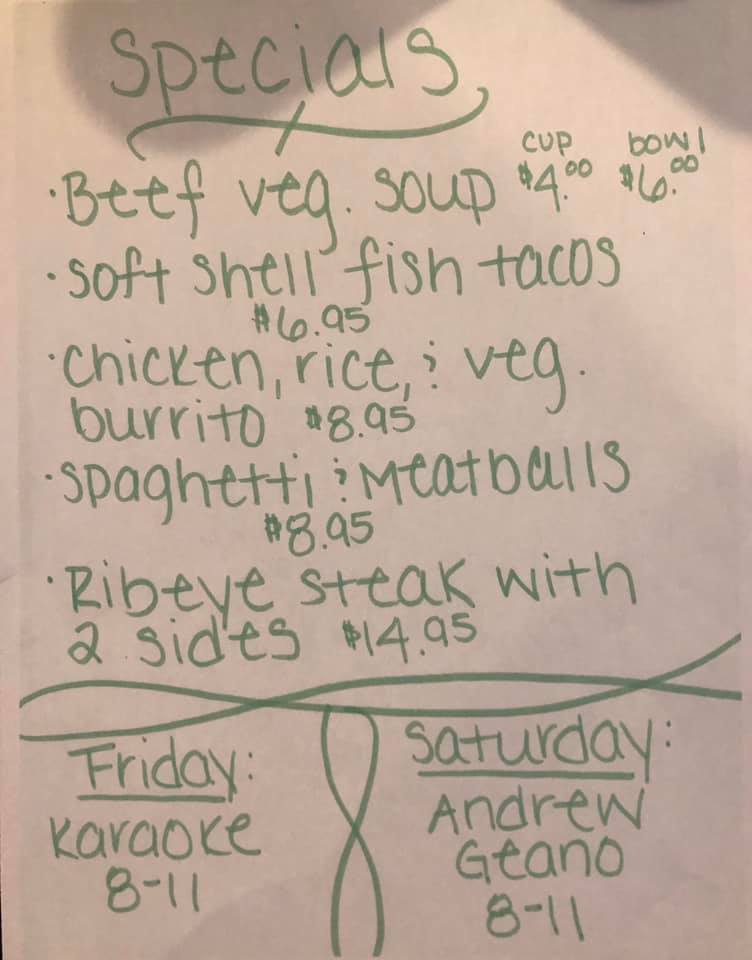 Specials
cup bowl
·Beef veg. soup $4.00 $6.00
·soft shell fish tacos
$6.95
·chicken, rice, & veg.
burrito $8.95
·spaghetti & Meatballs
$8.95
·Ribeye steak with
2 sides $14.95
Friday:
Karaoke
8-11
Saturday:
Andrew
Geano
8-11